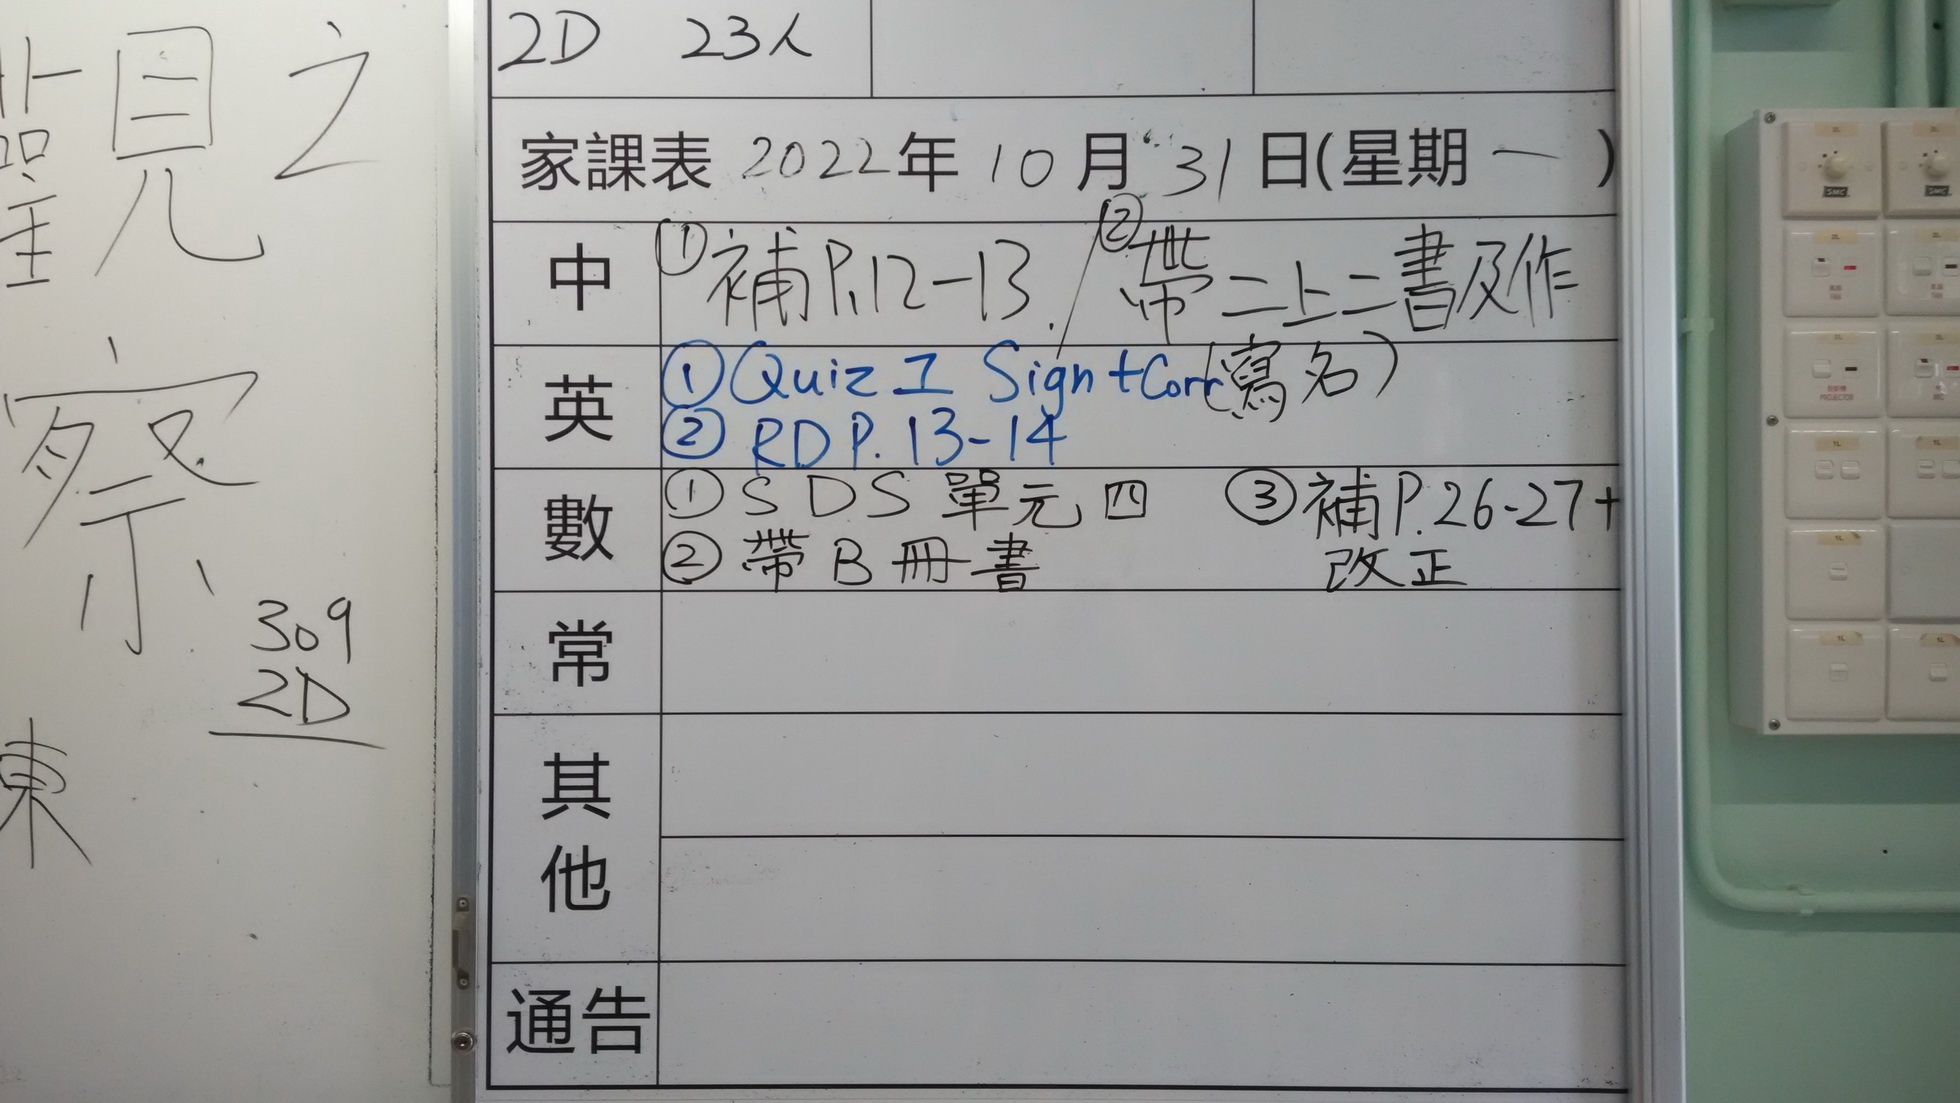 觀之
察
309
2D
東
2D 23人
家課表 2022年 10月 31日(星期一)
中 ①補P.12-13. / ②帶二上二書及作(寫名)
英 ①Quiz 1 Sign + Corr
②RD P.13-14
數 ①SDS單元四 ③補P.26-27+
②帶B冊書 改正
常
其他
通告